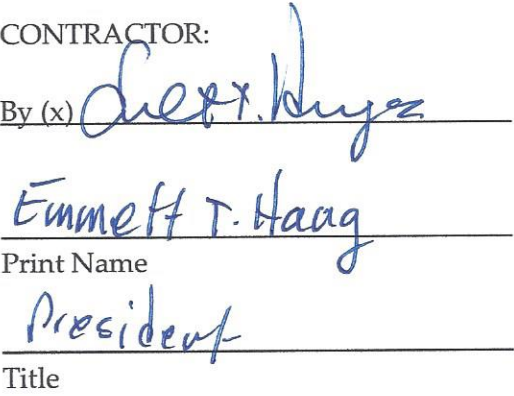 CONTRACTOR:
By (x)
Emmett T. Haag
Print Name
President
Title